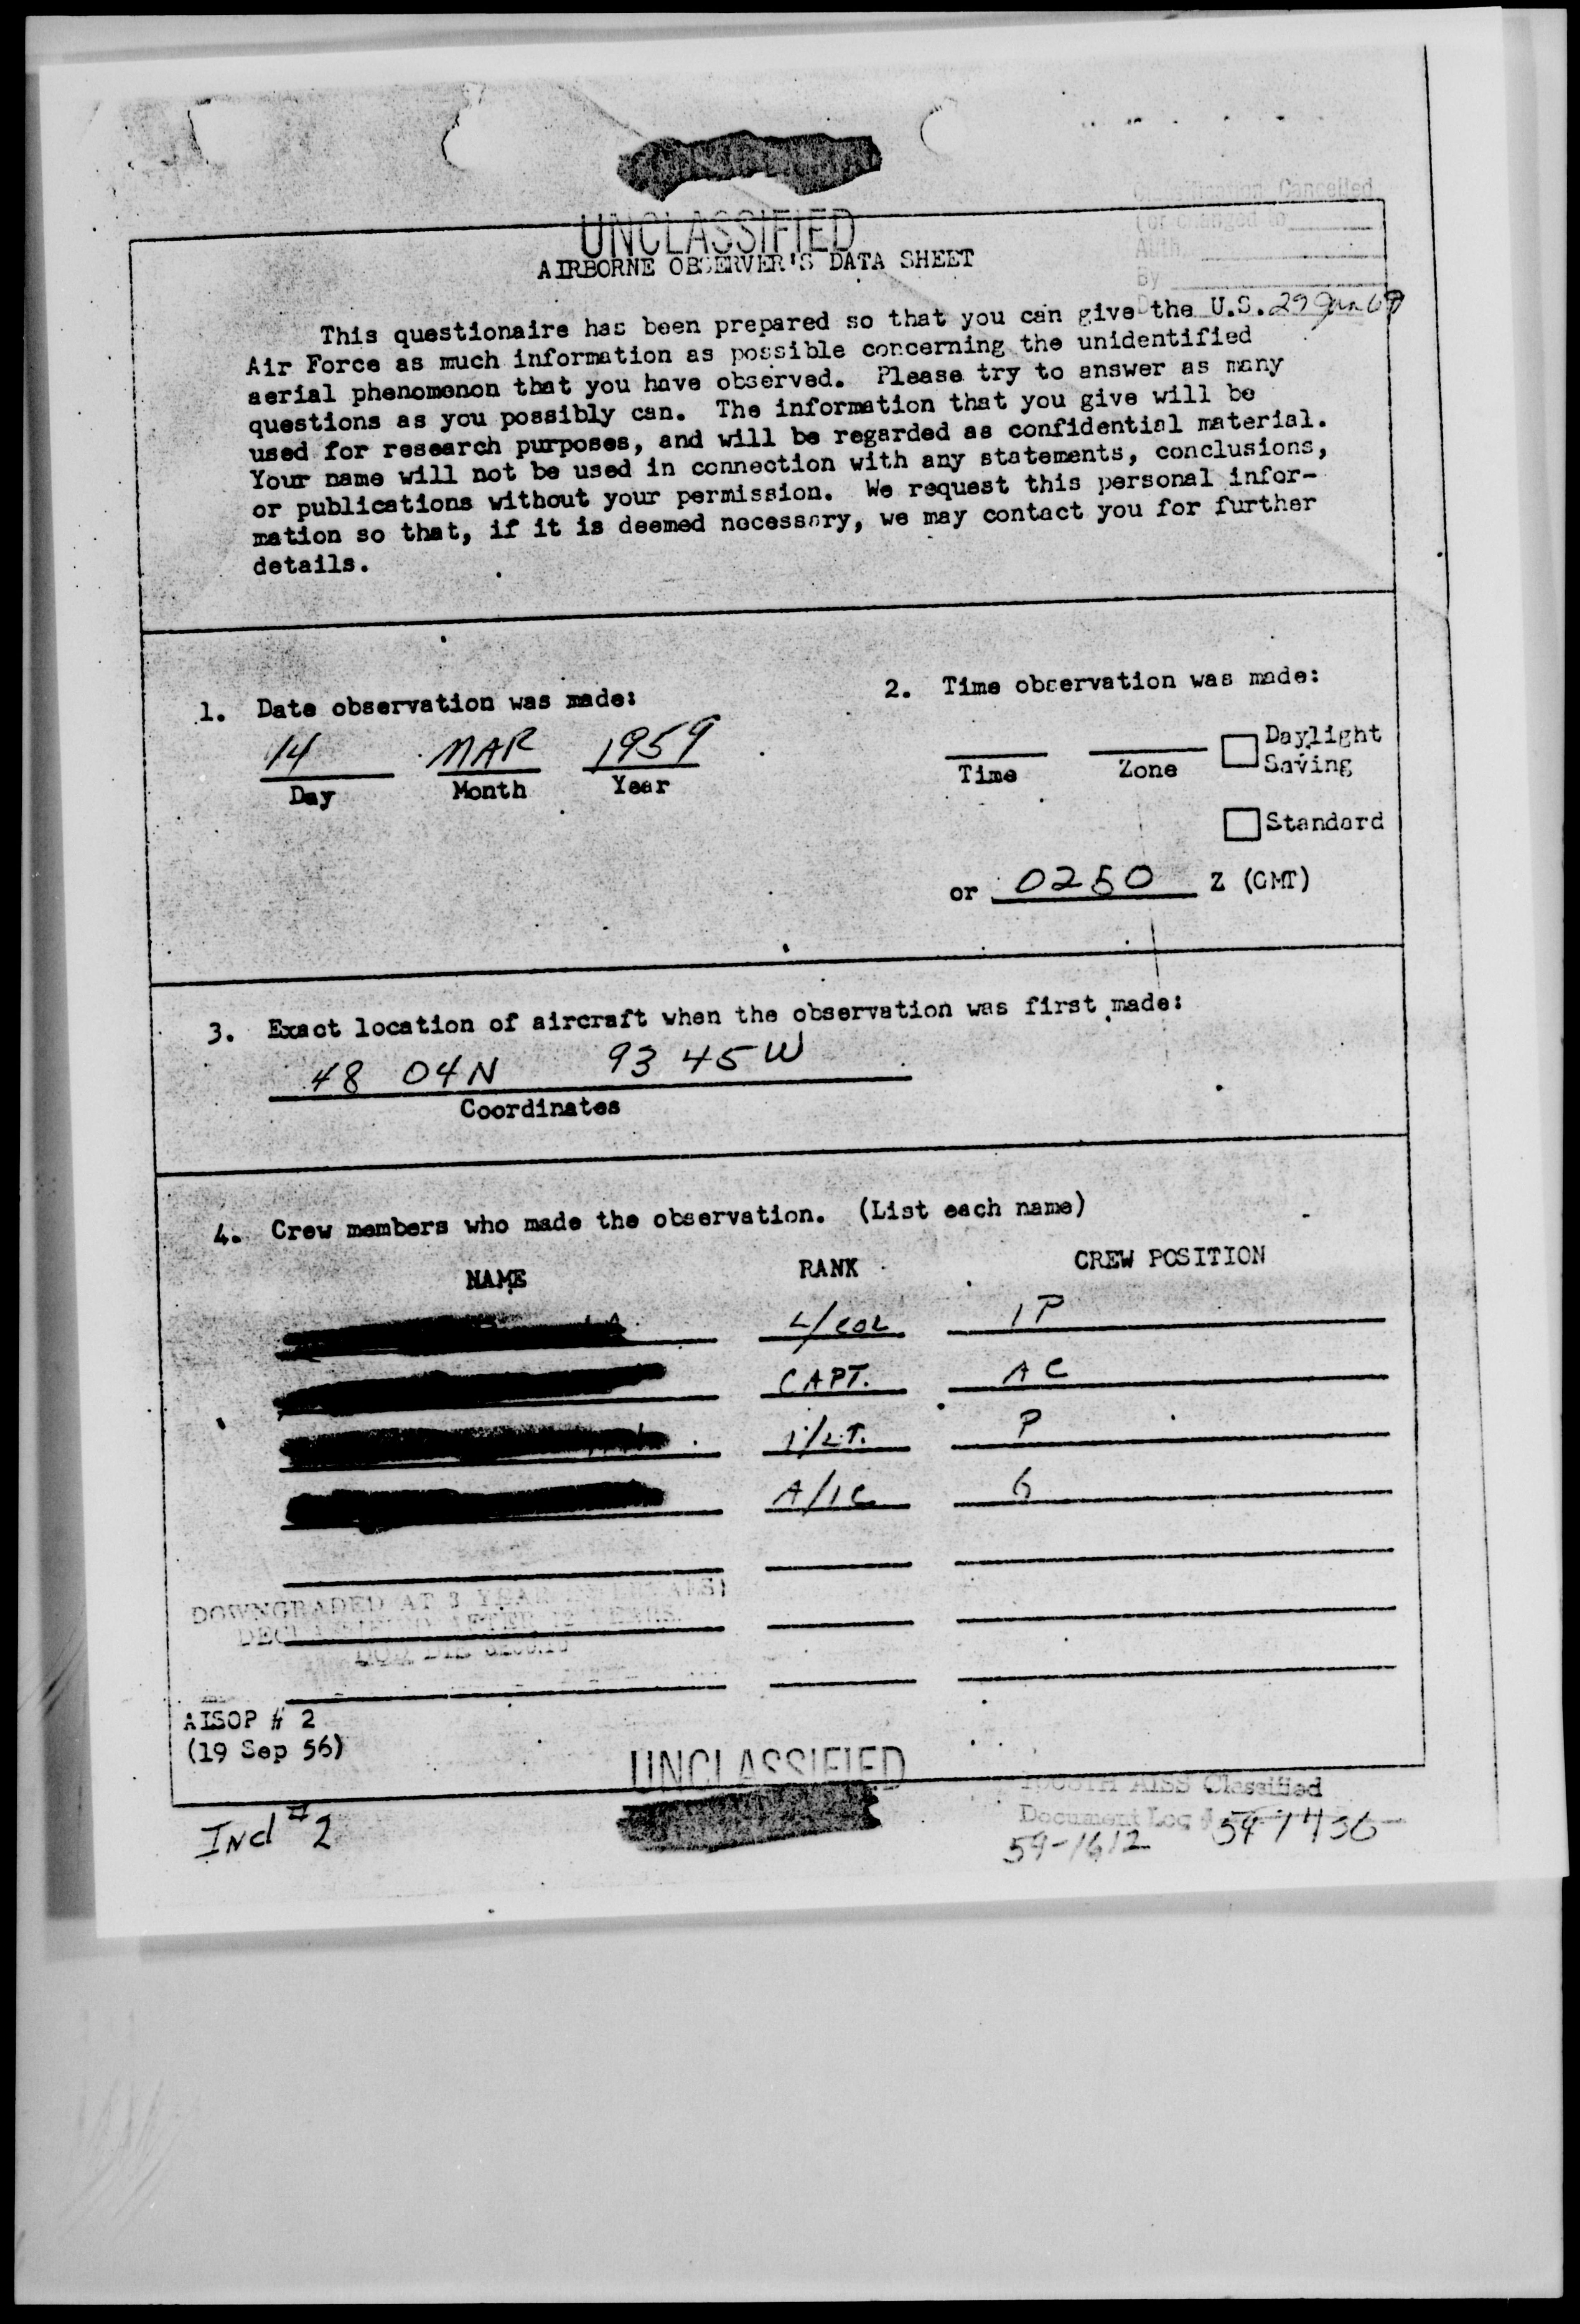 UNCLASSIFIED
Cancelled
(or changed to
Auth.
By
AIRBORNE OBSERVER'S DATA SHEET
29 Jan 68
This questionaire has been prepared so that you can give the U.S.
Air Force as much information as possible concerning the unidentified
aerial phenomenon that you have observed. Please try to answer as many
questions as you possibly can. The information that you give will be
used for research purposes, and will be regarded as confidential material.
Your name will not be used in connection with any statements, conclusions,
or publications without your permission. We request this personal infor-
mation so that, if it is deemed necessary, we may contact you for further
details.
1. Date observation was made:
14 MAR 1959
Day Month Year
2. Time observation was made:
Time Zone Daylight
Saving
Standard
or 0250 Z (GMT)
3. Exact location of aircraft when the observation was first made:
48 04N 93 45W
Coordinates
4. Crew members who made the observation. (List each name)
NAME RANK CREW POSITION
L/COL IP
CAPT. AC
1/LT. P
A/1C G
DOWNGRADED AT 3 YEAR INTERVALS;
DECLASSIFIED AFTER 12 YEARS.
DOD DIR 5200.10
AISOP # 2
(19 Sep 56)
UNCLASSIFIED
Incl #2
AISS Classified
Document Log #
59-1612